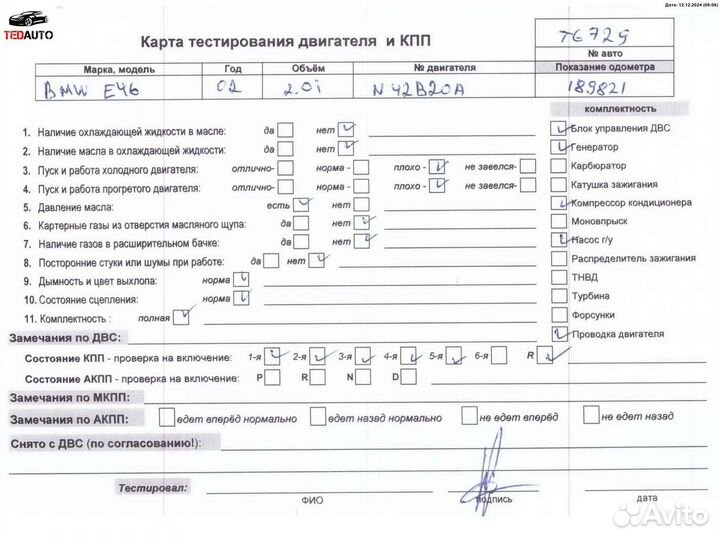 Дата: 12.12.2024 (08:06)
TEDAUTO
Карта тестирования двигателя и КПП
T6729
№ авто
Марка, модель Год Объём № двигателя Показание одометра
BMW E46 02 2.0i N42B20A 189821
комплектность
1. Наличие охлаждающей жидкости в масле: да нет
Блок управления ДВС
2. Наличие масла в охлаждающей жидкости: да нет
Генератор
3. Пуск и работа холодного двигателя: отлично- норма - плохо - не завелся-
Карбюратор
4. Пуск и работа прогретого двигателя: отлично- норма - плохо - не завелся-
Катушка зажигания
5. Давление масла: есть нет
Компрессор кондиционера
6. Картерные газы из отверстия масляного щупа: да нет
Моновпрыск
7. Наличие газов в расширительном бачке: да нет
Насос г/у
8. Посторонние стуки или шумы при работе: да нет
Распределитель зажигания
9. Дымность и цвет выхлопа: норма
ТНВД
10. Состояние сцепления: норма
Турбина
11. Комплектность : полная
Форсунки
Замечания по ДВС:
Проводка двигателя
Состояние КПП - проверка на включение: 1-я 2-я 3-я 4-я 5-я 6-я R
Состояние АКПП - проверка на включение: P R N D
Замечания по МКПП:
Замечания по АКПП: едет вперёд нормально едет назад нормально не едет вперёд не едет назад
Снято с ДВС (по согласованию!):
Тестировал:
ФИО подпись дата
Avito